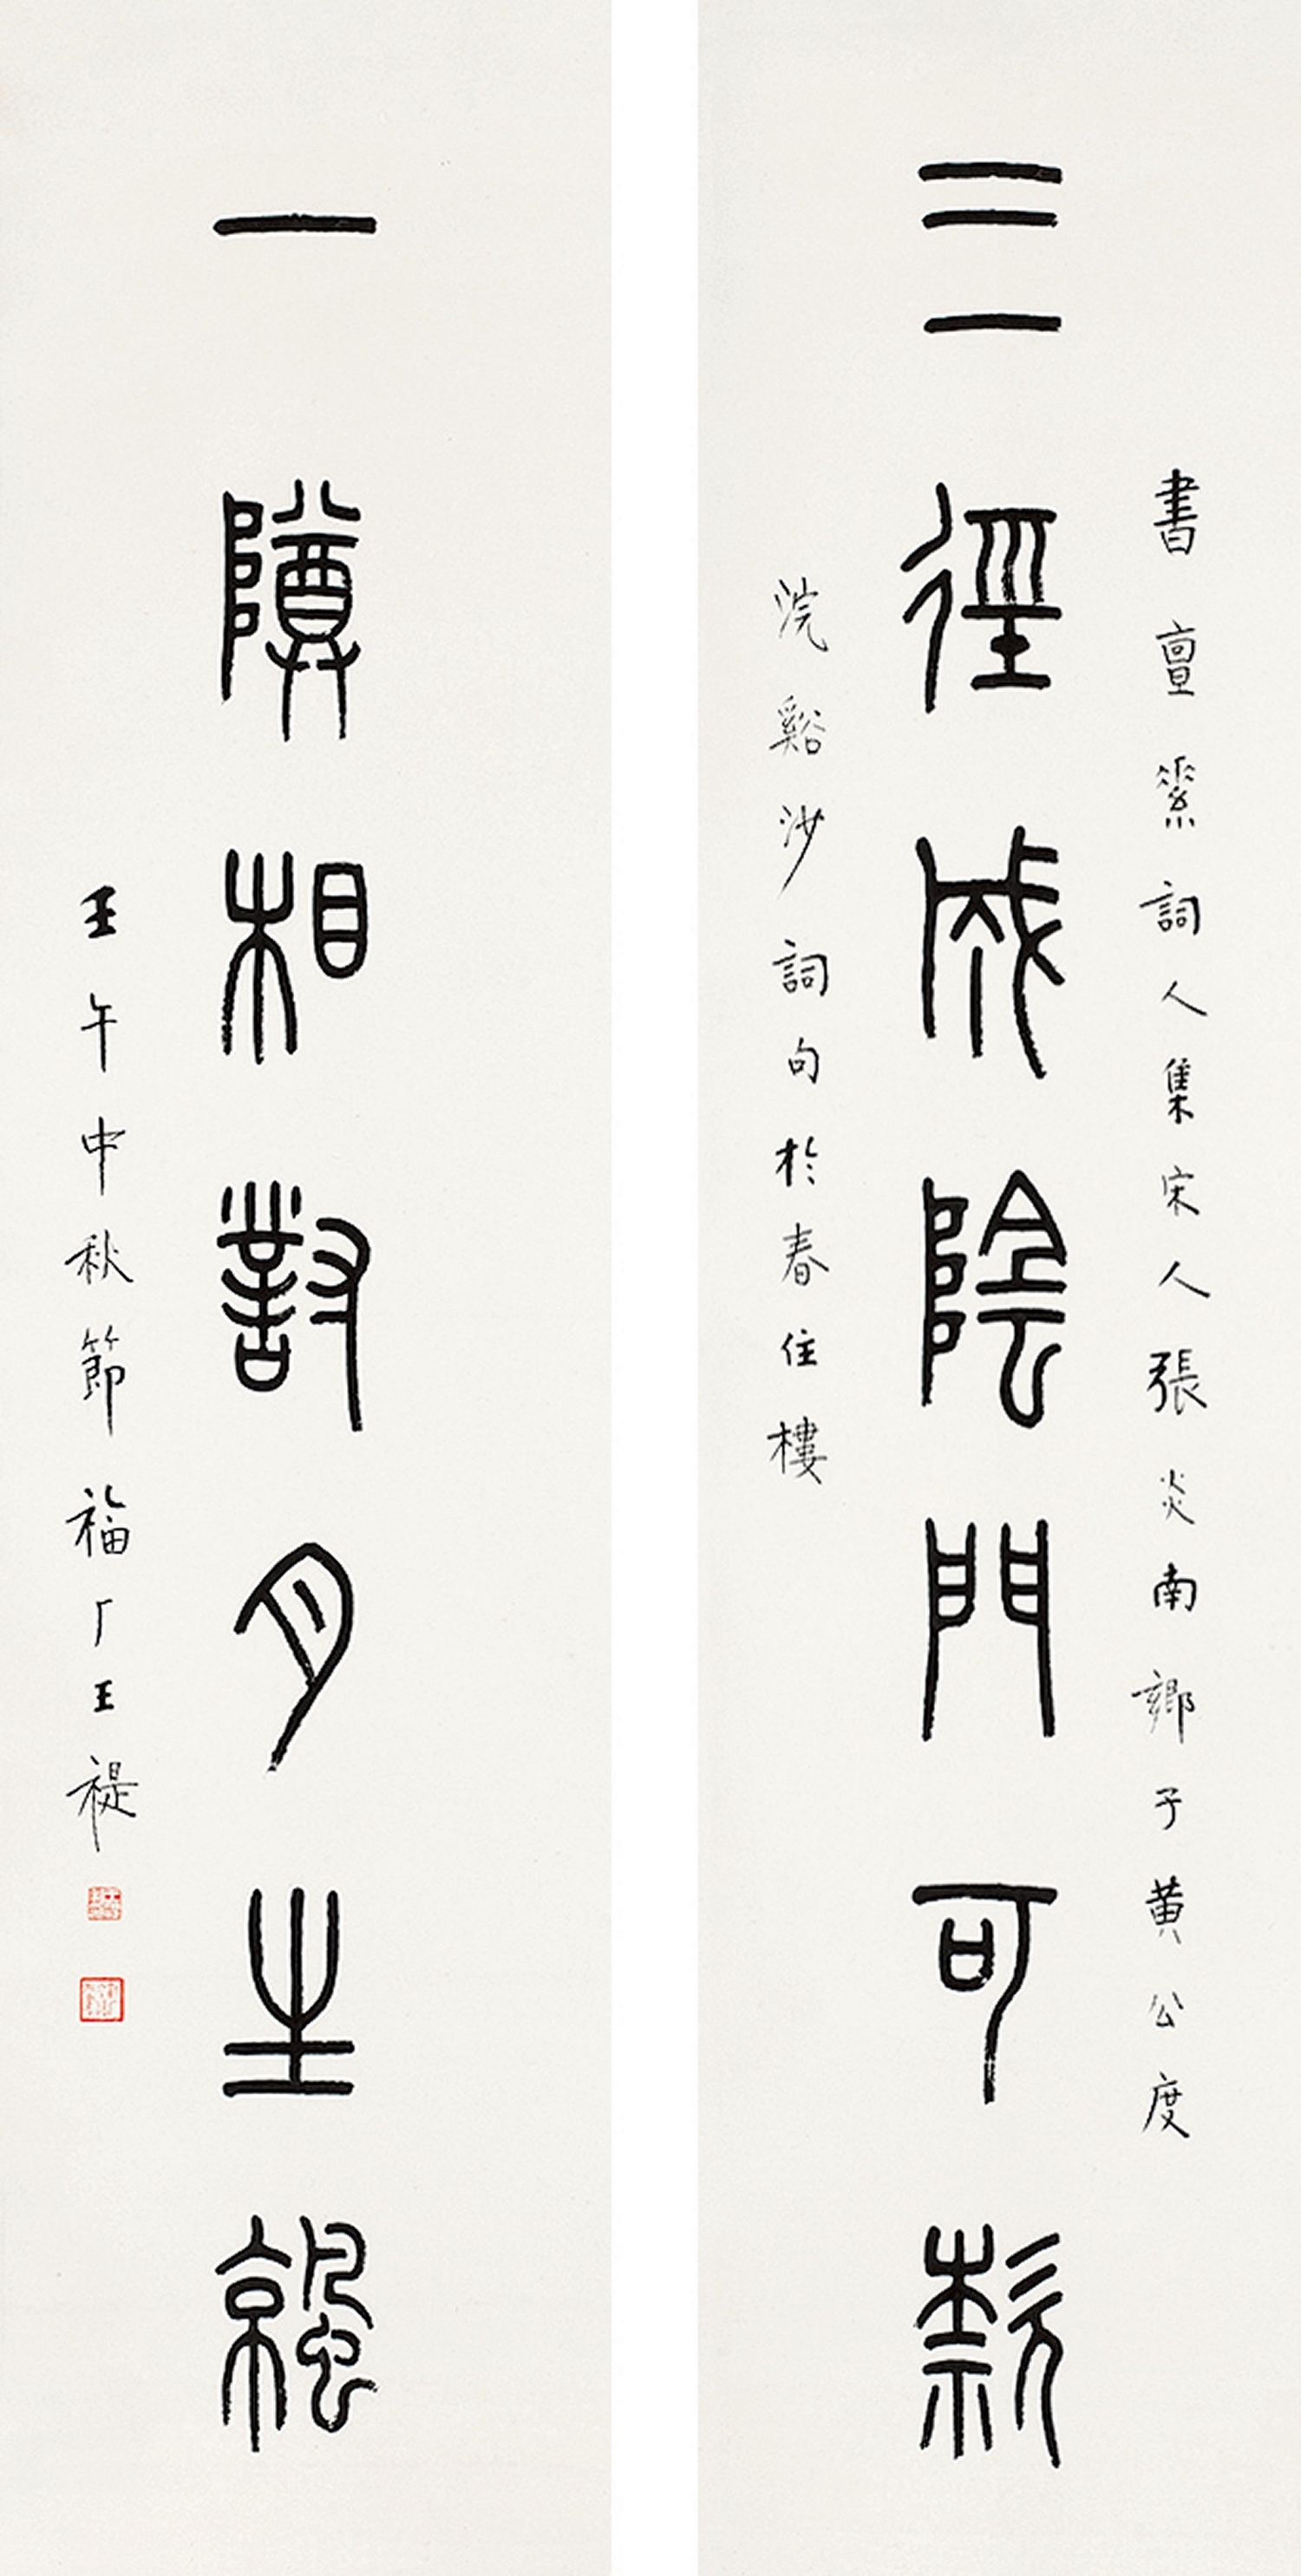 三徑成陰門可款
書亶素詞人集宋人張炎南鄉子黃公度
浣谿沙詞句於春住樓
一尊相對月生䬝
壬午中秋節福厂王禔